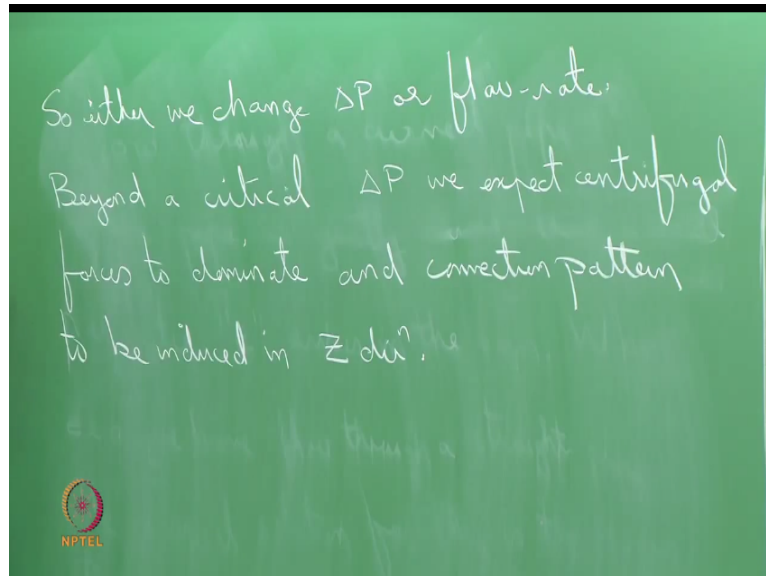 So either we change ΔP or flow-rate.
Beyond a critical ΔP we expect centrifugal
forces to dominate and convection pattern
to be induced in Z dirⁿ.
NPTEL